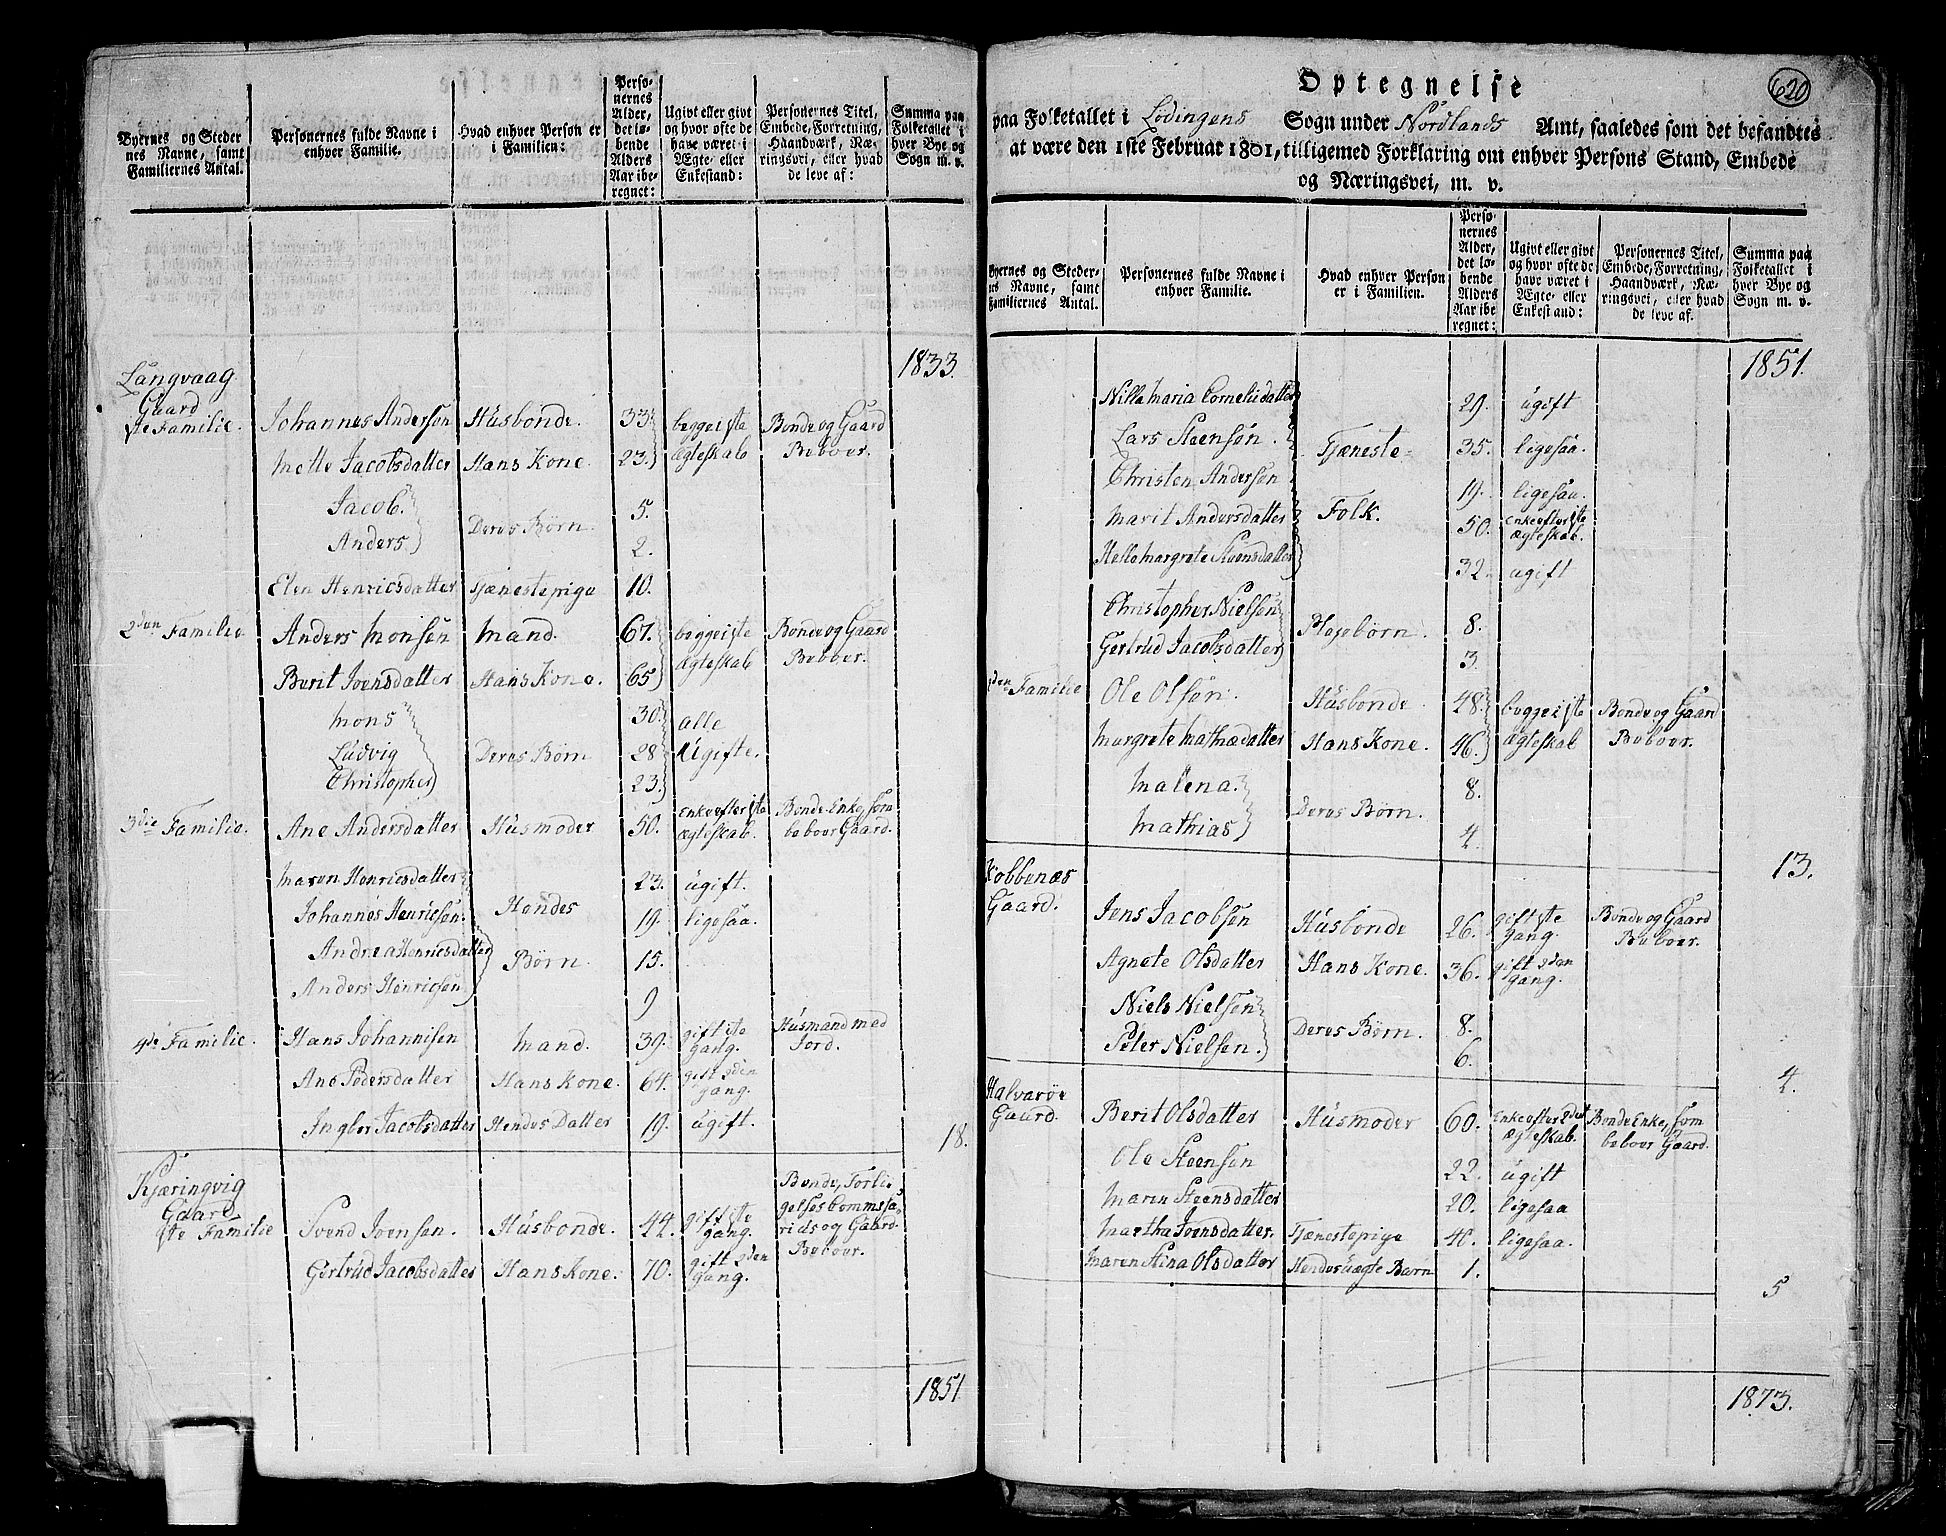 Byernes og Steder
nes Navne, samt
Familiernes Antal.
Personernes fulde Navne i
enhver Familie.
Hvad enhver Person er
i Familien:
Perso-
nernes
Alder,
det lø-
bende
Alders
Aar ibe-
regnet:
Ugivt eller givt
og hvor ofte de
have været i
Ægte- eller
Enkestand:
Personernes Titel,
Embede, Forretning,
Haandværk, Næ-
ringsvei, eller hvad
de leve af:
Summa paa
Folketallet i
hver Bye og
Sogn m. v.
1833.
Langvaag
Gaard
1ste Familie. Johannes Andersøn Husbonde. 33 begge i 1ste Bonde og Gaard
Mette Jacobsdatter Hans Kone. 23. Ægteskab Beboer.
Jacob. 5.
Deres Børn.
Anders 2.
Elen Henricsdatter Tjenestepige 10.
2den Familie Anders Monsen Mand. 67. begge i 1ste Bonde og Gaard
Berit Joensdatter Hans Kone. 65 Ægteskab Beboer.
Mons 30. alle
Ludvig Deres Børn 28 Ugifte.
Christopher 23.
3die Familie. Ane Andersdatter Husmoder 50. Enke efter 1ste Bonde Enke, som
ægteskab. beboer Gaard.
Maren Henricsdatter 23. ugift.
Johannes Henricsen. Hendes 19. ligesaa.
Andrea Henricsdatter Børn. 15.
Anders Henricsen 9
4de Familie. Hans Johannisen Mand. 39. gift 1ste Husmand med
gang. Jord.
Ane Pedersdatter Hans Kone. 64. gift 2den
gang.
Ingber Jacobsdatter Hendes Datter 19. ugift.
18.
Kjæringvig
Gaard
1ste Familie Svend Ivensen. Husbonde. 44. gift 1ste Bonde, Forli
gang. gelses Commissa
rids og Gaard
Beboer.
Gertrud Jacobsdatter Hans Kone. 70. gift 2den
gang.
1851
620
Optegnelse
paa Folketallet i Lødingens Sogn under Nordlands Amt, saaledes som det befandtes
at være den 1ste Februar 1801, tilligemed Forklaring om enhver Persons Stand, Embede
og Næringsvei, m. v.
Byernes og Steder-
nes Navne, samt
Familiernes Antal.
Personernes fulde Navne i
enhver Familie.
Hvad enhver Person
er i Familien.
Perso-
nernes
Alder,
det lø-
bende
Alders
Aar ibe-
regnet:
Ugivt eller givt
og hvor ofte de
have været i
Ægte- eller
Enkestand:
Personernes Titel,
Embede, Forretning,
Haandværk, Næ-
ringsvei, eller hvad
de leve af.
Summa paa
Folketallet i
hver Bye og
Sogn m. v.
1851.
Nilla Maria Cornelisdatter 29. ugift
Lars Steensøn. Tjæneste- 35. ligesaa.
Christen Andersøn 19. ligesaa.
Marit Andersdatter Folk. 50. Enke efter 1ste
Ægteskab.
Margrete Steensdatter 32. ugift
Christopher Nielsen 8.
Plejebørn.
Gertrud Jacobsdatter 3.
2den Familie Ole Olsøn. Husbonde 48. begge i 1ste Bonde og Gaard
Margrete Mathiædatter Hans Kone. 46. Ægteskab Beboer.
Malena. 8.
Deres Børn
Mathias 4.
13.
Kobbenæs
Gaard. Jens Jacobsen Husbonde 26. gift 1ste Bonde og Gaard
gang. Beboer.
Agnete Olsdatter Hans Kone. 36. gift 2den
gang.
Niels Nielsen 8.
Deres Børn.
Peter Nielsen. 6.
4.
Halvarøe
Gaard. Berit Olsdatter Husmoder 60. Enke efter 2det Bonde Enke, som
ægteskab. beboer Gaard.
Ole Steensen 22. ugift
Maren Steensdatter 20. ligesaa
Martha Ivensdatter. Tjænestepige 40. ligesaa.
Maren Stina Olsdatter Hendes uægte Barn 1.
5
1873.